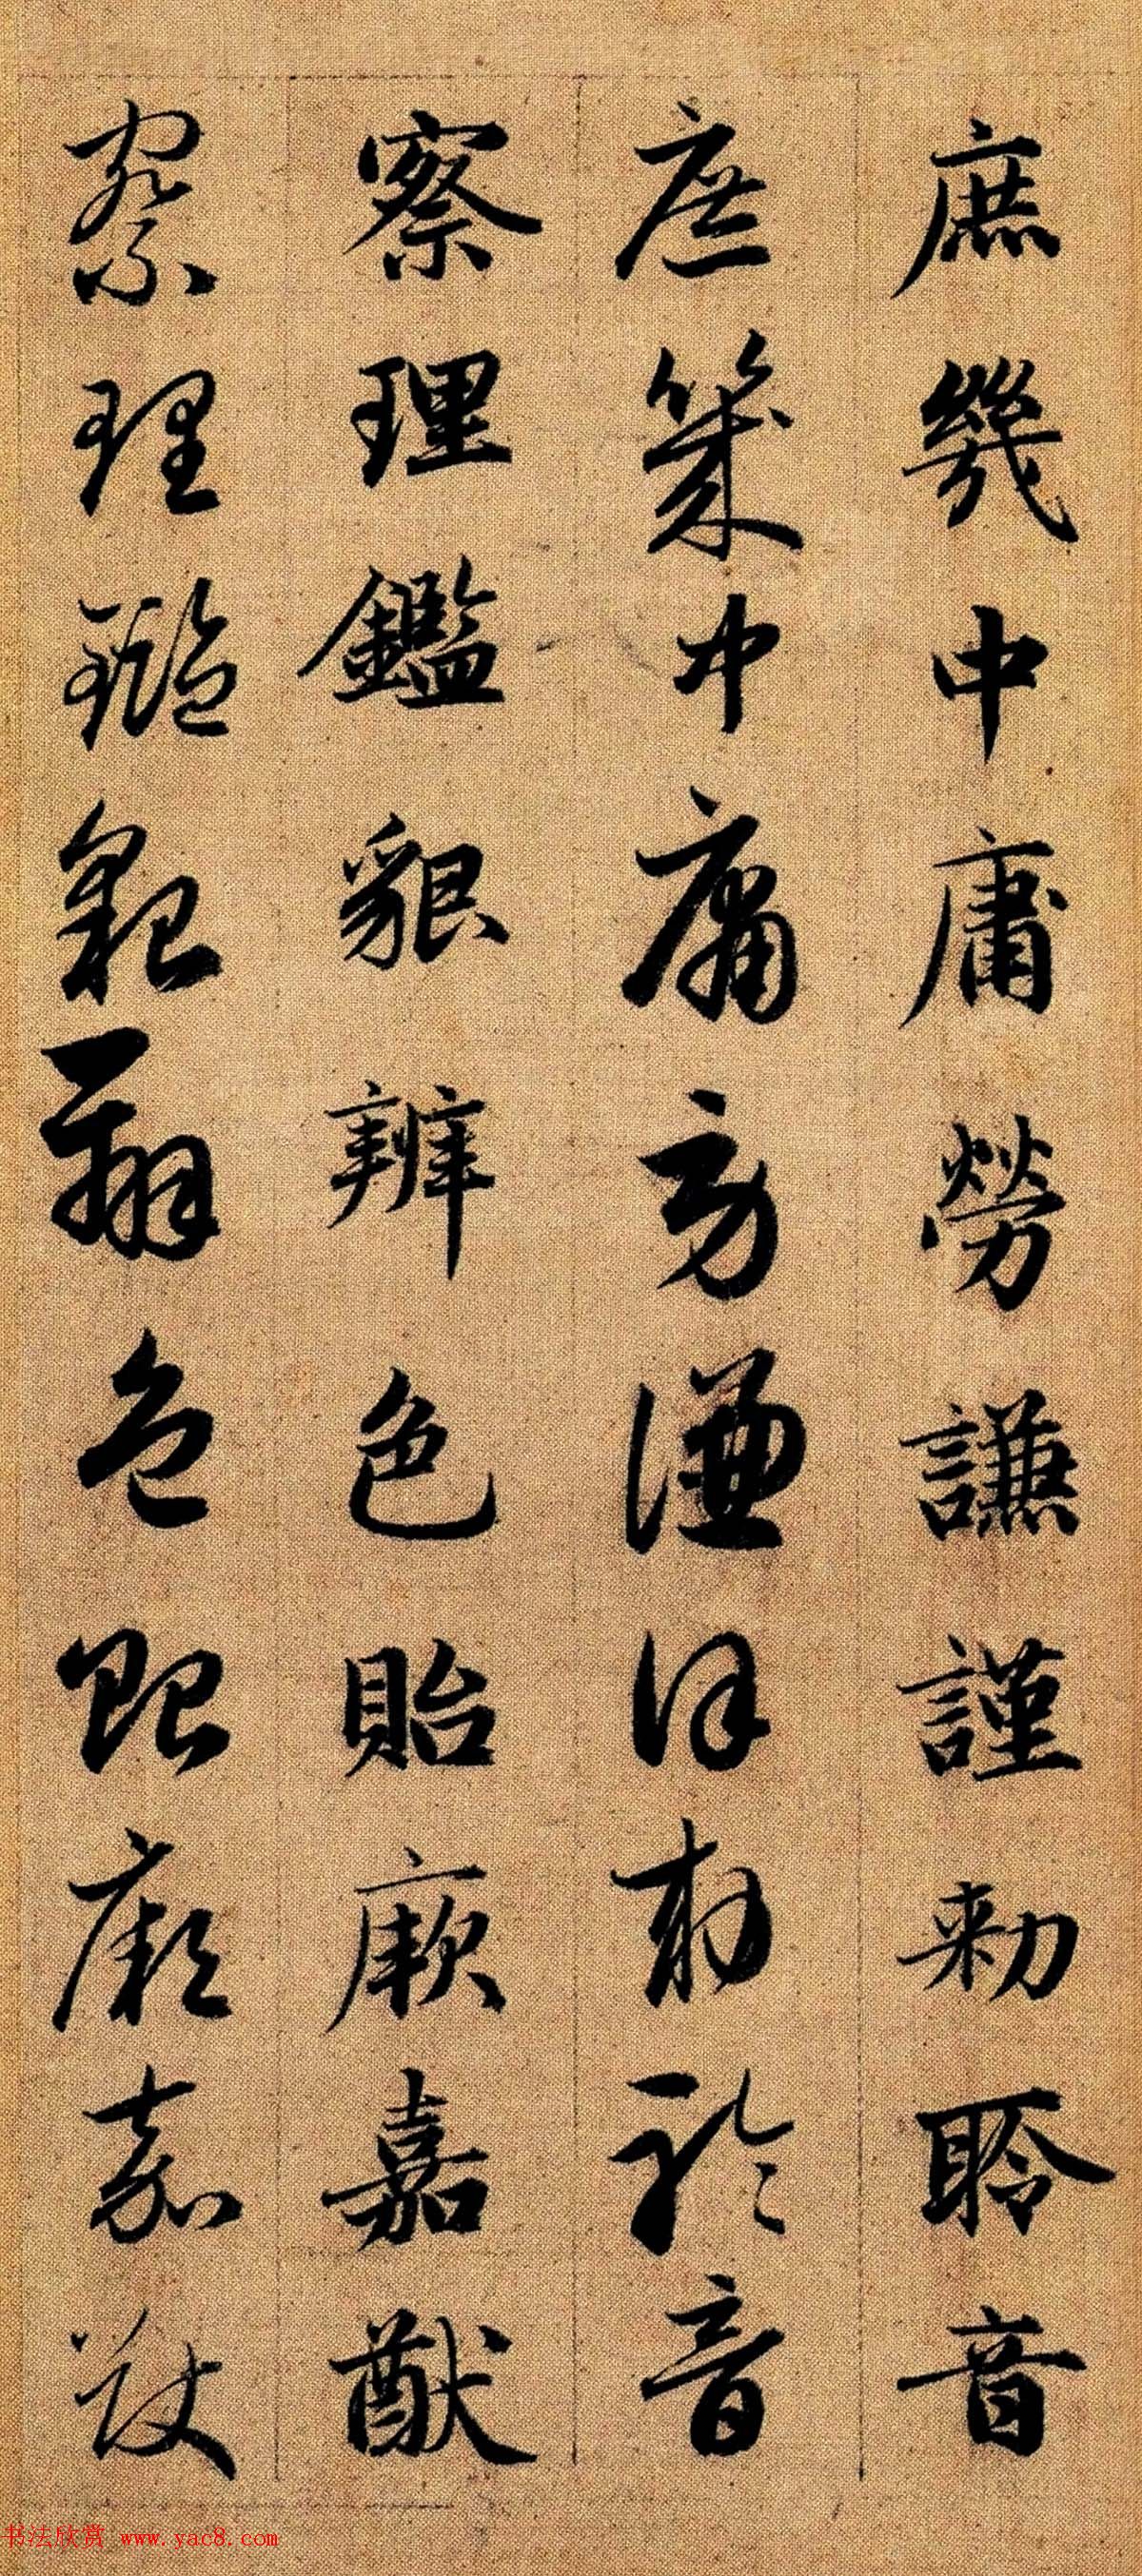 庶幾中庸勞謙謹勑聆音
庶幾中庸勞謙謹勑聆音
察理鑑貌辨色貽厥嘉猷
察理鑑貌辨色貽厥嘉猷
书法欣赏 www.yac8.com